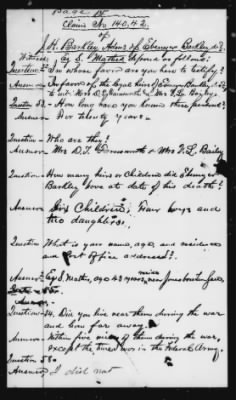 Page IV
Claim No. 14042
of
J. H. Barkley Admr of Ebenezer Barkley decd.
Witness S. Mathes deposes as follows:
Question 32 In whose favor are you here to testify?
Answer In favor of the legal heirs of Ebenezer Barkley decd
to wit: Mrs D. T. & Mrs V. L. Bailey
Question 32. - How long have you known these persons?
Answer - For twenty years -
Question - Who are they?
Answer Mrs D. T. & Mrs V. L. Bailey
Question - How many heirs or Children did Ebenezer
Barkley have at date of his death?
Answer Six Children, Four boys and
two daughters.
Question - What is your name, age, and residence
and Post Office address?
Answer S. Mathes, age 43 years, near Jonesboro Tenn
Answer
Question 34. Did you live near them during the war
and how far away.
Answer Within five miles of them during the war,
except the time I was in the Federal Army.
Question 58 -
Answer I did not